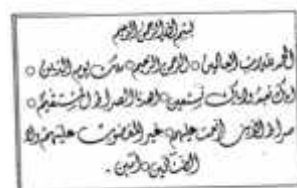 بسم الله الرحمن الرحيم
الحمد لله رب العالمين ○ الرحمن الرحيم ○ ملك يوم الدين ○
اياك نعبد واياك نستعين ○ اهدنا الصراط المستقيم ○
صراط الذين انعمت عليهم ○ غير المغضوب عليهم ولا
الضالين ○ آمين .